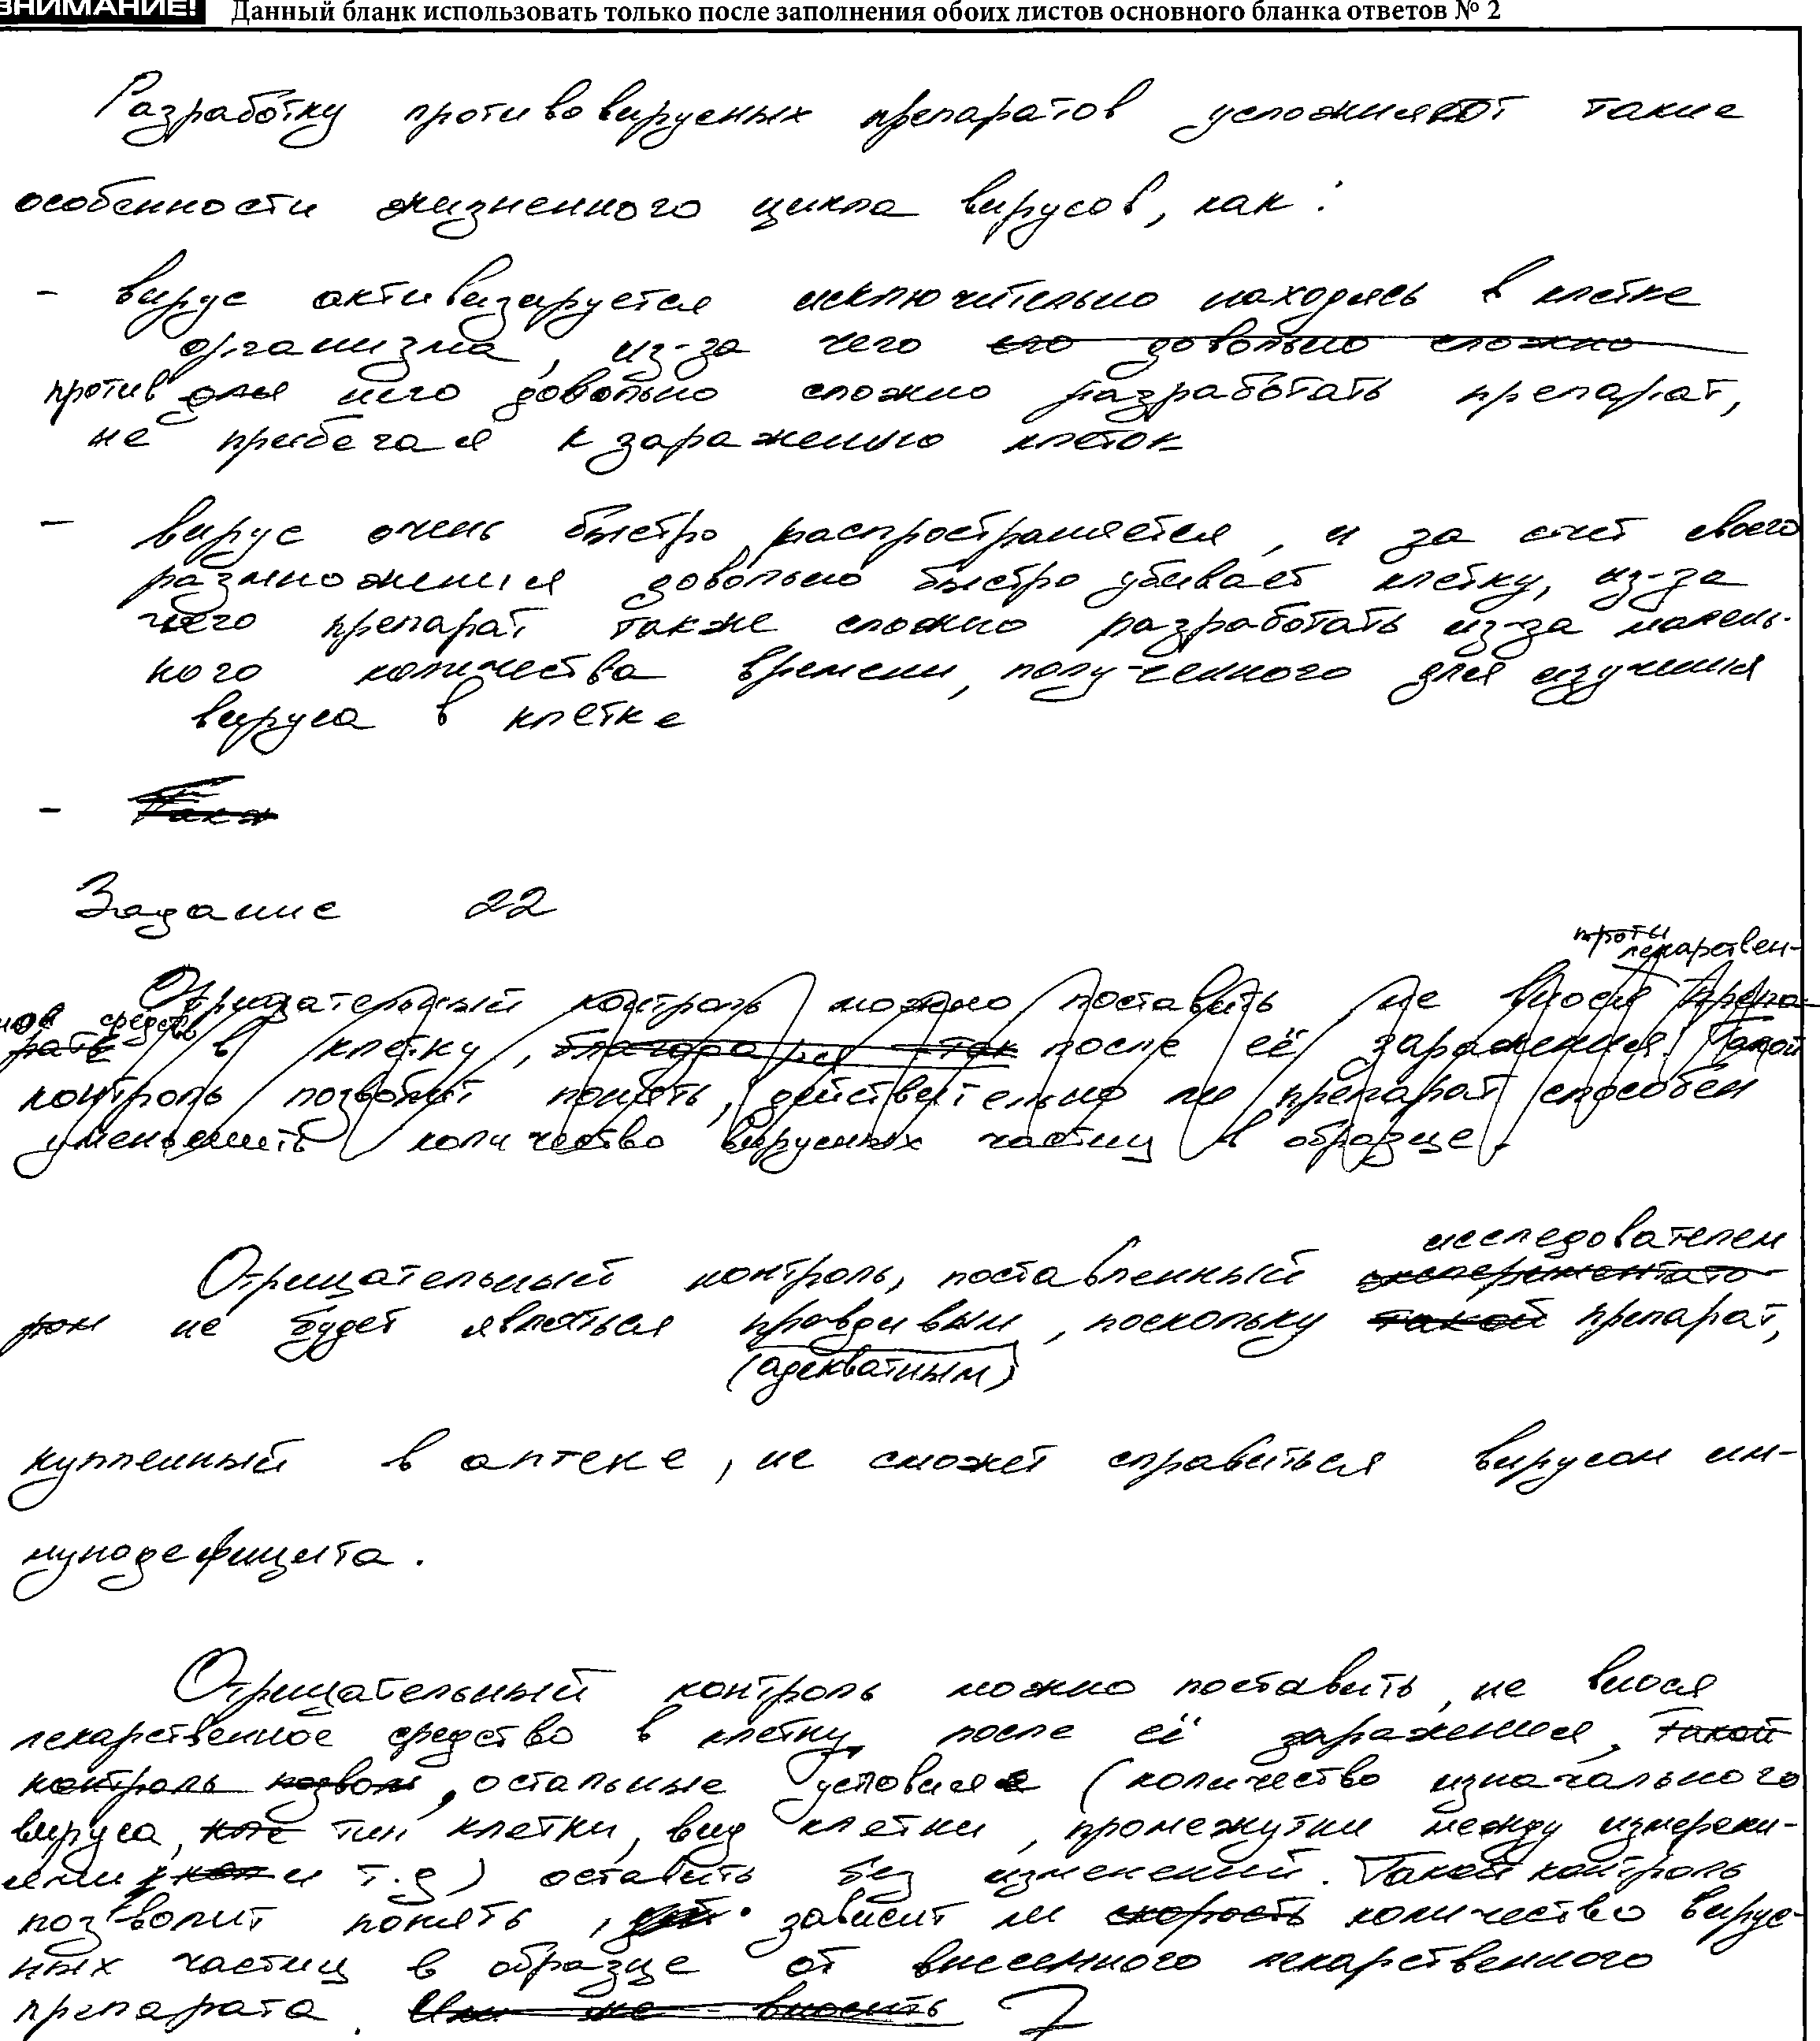 ВНИМАНИЕ! Данный бланк использовать только после заполнения обоих листов основного бланка ответов № 2
Разработку противовирусных препаратов усложняют такие
особенности жизненного цикла вирусов, как:
- вирус активизируется исключительно находясь в клетке
организма, из-за чего его довольно сложно
против для него довольно сложно разработать препарат,
не прибегая к заражению клеток
- вирус очень быстро распространяется, и за счет своего
размножения довольно быстро убивает клетку, из-за
чего препарат также сложно разработать из-за малень-
кого количества времени, полученного для изучения
вируса в клетке
- Такж
Задание 22
проти
лекарствен-
Отрицательный контроль можно поставить не внося препа-
ное средств
рате в клетку, благодаря так после её заражения. Такой
контроль позволит понять, действительно ли препарат способен
уменьшить количество вирусных частиц в образце.
исследователем
Отрицательный контроль, поставленный экспериментато-
ром не будет являться правдивым, поскольку такой препарат,
(адекватным)
купленный в аптеке, не сможет справиться вирусом им-
мунодефицита.
Отрицательный контроль можно поставить, не внося
лекарственное средство в клетку после её заражения, Такой
контроль позвол, остальные условия (количество изначального
вируса, тип клетки, вид клетки, промежутки между измерени-
ями и т.д) оставить без изменений. Такой контроль
позволит понять, зависит ли скорость количество вирус-
ных частиц в образце от внесенного лекарственного
препарата. Или не вносить